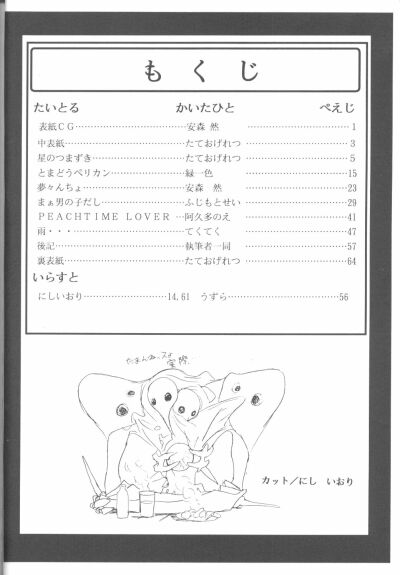 もくじ
たいとる　かいたひと　ぺえじ
表紙ＣＧ……………………安森 然 ……………………1
中表紙……………………たておげれつ ……………………3
星のつまずき……………………たておげれつ ……………………5
とまどうペリカン……………………緑　色 ……………………15
夢々んちょ……………………安森　然 ……………………23
まぁ男の子だし……………………ふじもとせい ……………………29
ＰＥＡＣＨＴＩＭＥ ＬＯＶＥＲ …阿久多のえ ……………………41
雨・・・……………………てくてく ……………………47
後記……………………執筆者一同 ……………………57
裏表紙……………………たておげれつ ……………………64
いらすと
にしいおり……………………14,61　うずら……………………56
カット／にし　いおり